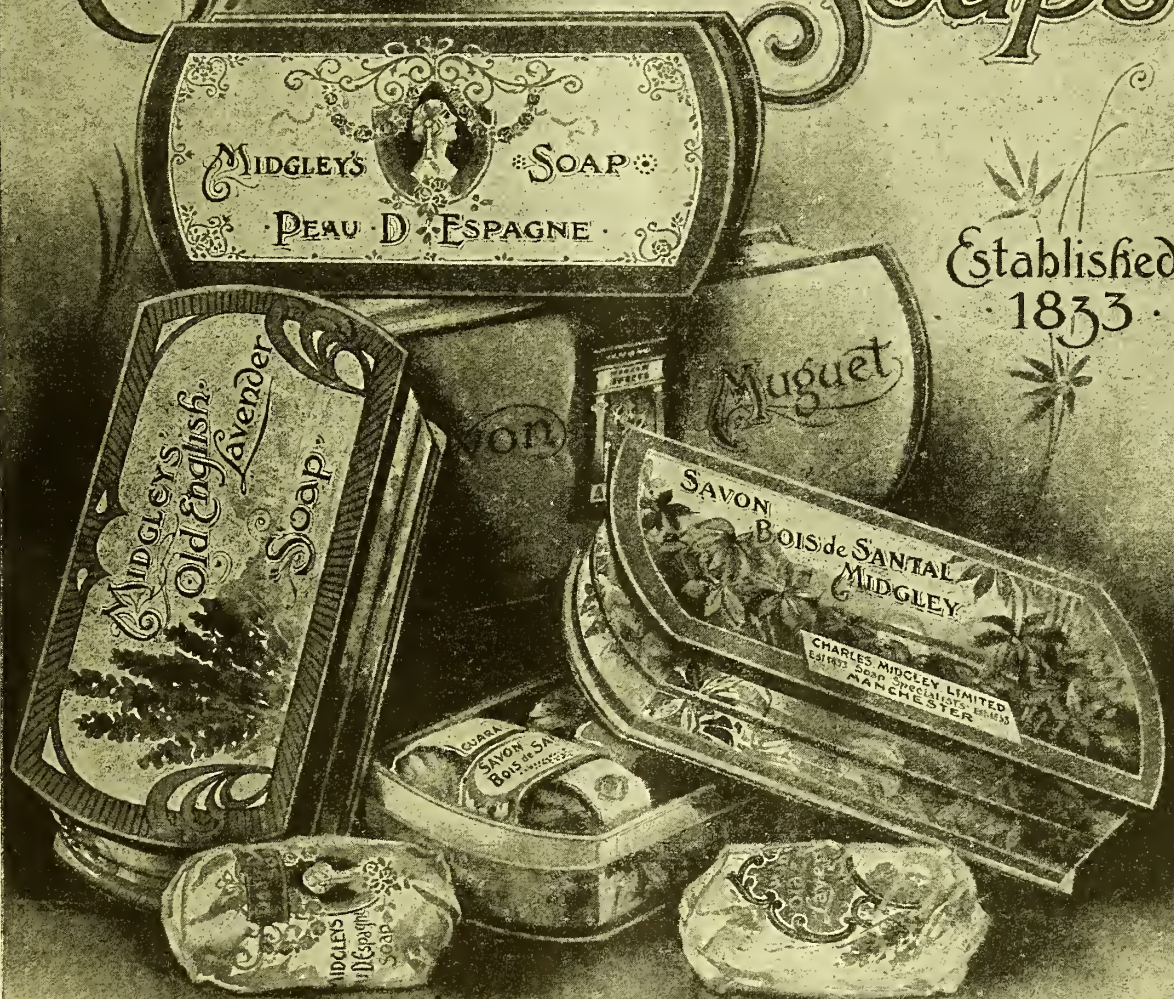 Soaps
MIDGLEY'S SOAP
PEAU D'ESPAGNE
Established
1833
MIDGLEY'S
Old English
Lavender
Soap
von
Muguet
SAVON
BOIS de SANTAL
MIDGLEY
CHARLES MIDGLEY LIMITED
ESTd 1833 Soap Specialists Est. 1833
MANCHESTER
GUARA
SAVON
BOIS de SA
MIDGLEYS
D'Espagne
SOAP
Old
Lavender